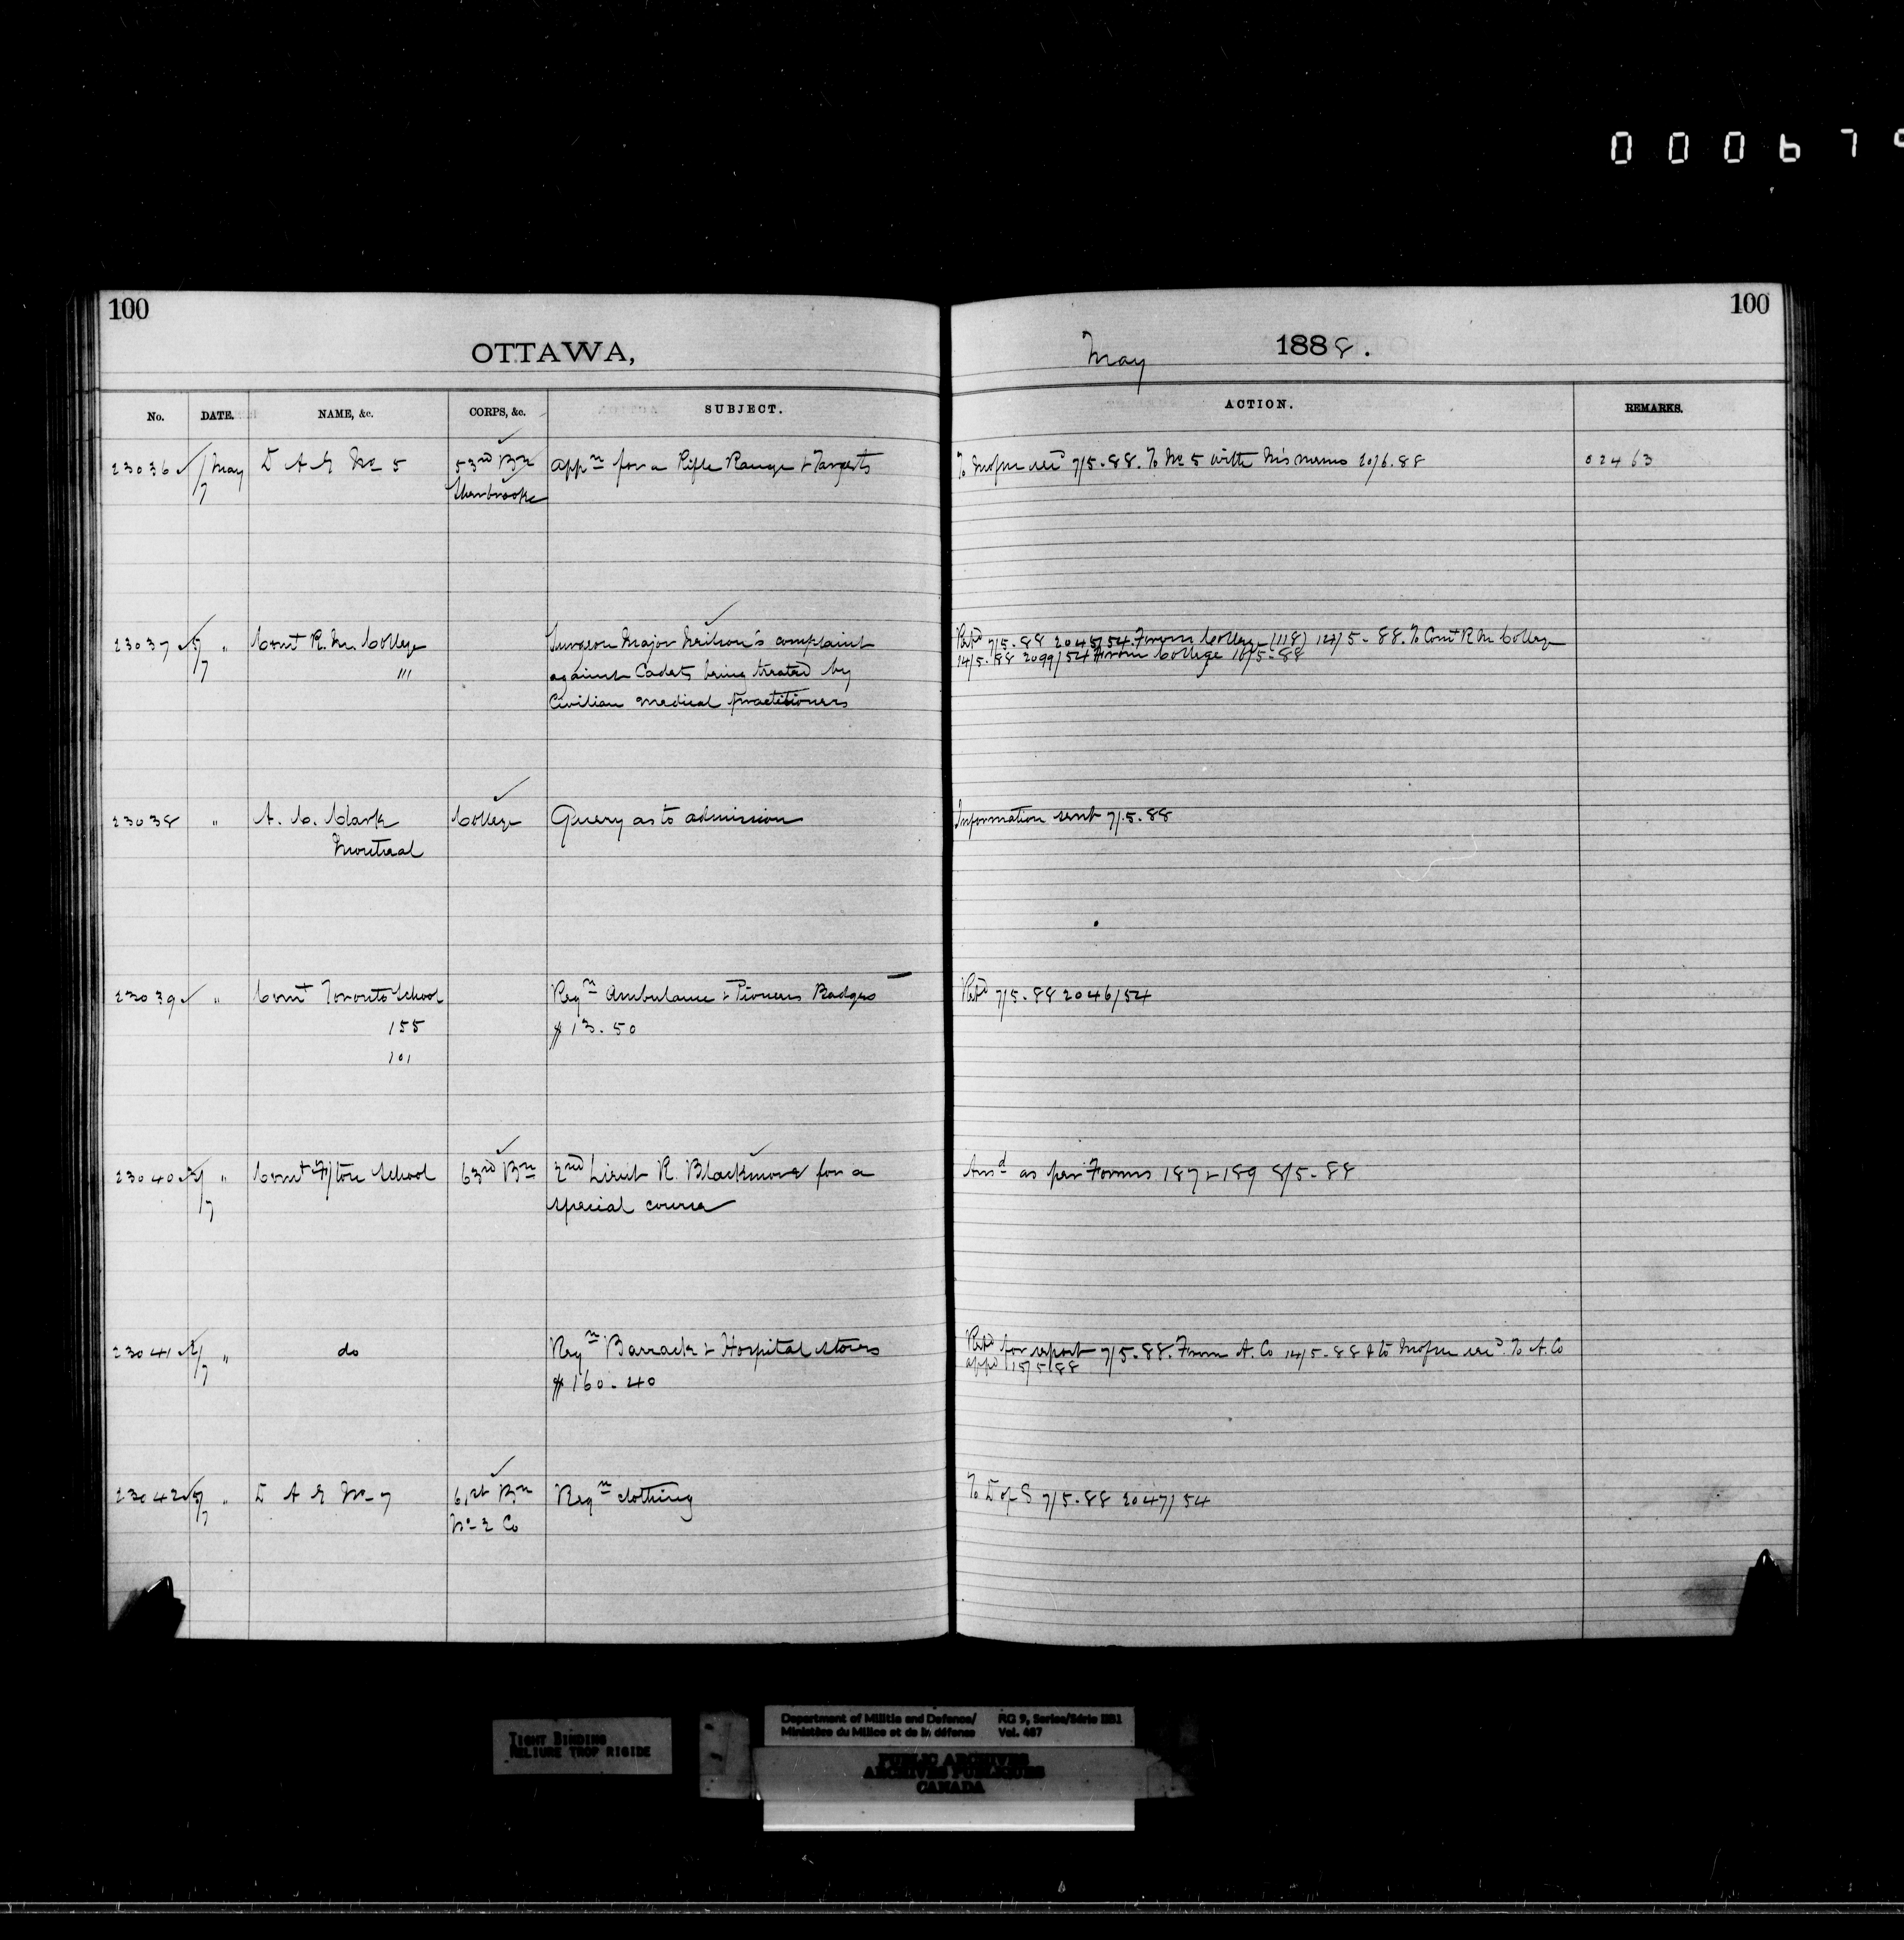 000679
100
100
OTTAWA,
May 1888.
No. DATE. NAME, &c. CORPS, &c. SUBJECT. ACTION. REMARKS.
23036 1/7 May D A G No 5 53rd Bn Appn for a Rifle Range & Targets To Mofne recd 7/5.88. To No 5 with his memo 20/6.88 02463
Sherbrooke
23037 5/7 " Comt R. M. College Surgeon Major Neilson's complaint Refd 7/5.88 2045/54 From College (118) 12/5-88. To Comt R M College
111 against Cadets being treated by 14/5.88 2099/54 From College 18/5-88
Civilian medical practitioners
23038 " A. C. Clark College Query as to admission Information sent 7/5.88
Montreal
23039 " Comt Toronto School Reqn Ambulance & Pioneers Badges Refd 7/5.88 2046/54
155 $13.50
101
23040 3/7 " Comt F/ton School 63rd Bn 2nd Lieut R. Blackmore for a Ansd as per Forms 187 & 189 8/5-88
special course
23041 2/7 " do Reqn Barrack & Hospital stores Refd for report 7/5.88. From A. Co 14/5-88 & to recd. To A. Co
$160.40 appd 15/5/88
23042 5/7 " D A G No 7 61st Bn Reqn clothing To D of S 7/5.88 2047/54
No 2 Co
TIGHT BINDING
RELIURE TROP RIGIDE
Department of Militia and Defence/ RG 9, Series/Série IIB1
Ministère du Milice et de la défense Vol. 487
PUBLIC ARCHIVES
ARCHIVES PUBLIQUES
CANADA